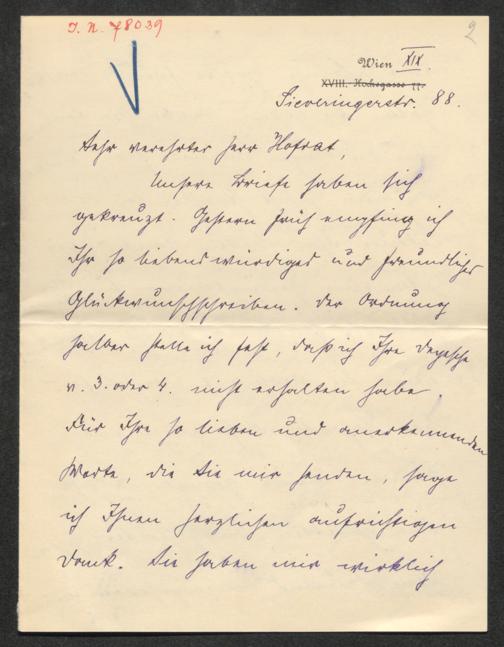 I. N. 78039
2
Wien XIX.
XVIII. Hockegasse 77.
Sieveringerstr. 88.
Sehr verehrter Herr Hofrat,
Unsere Briefe haben sich
gekreuzt. Gestern früh empfing ich
Ihr so liebenswürdiges und freundliches
Glückwunschschreiben. Der Ordnung
halber stelle ich fest, daß ich Ihre Depesche
v. 3. oder 4. nicht erhalten habe.
Für Ihre so lieben und anerkennenden
Worte, die Sie mir senden, sage
ich Ihnen herzlichen aufrichtigen
Dank. Sie haben mir wirklich